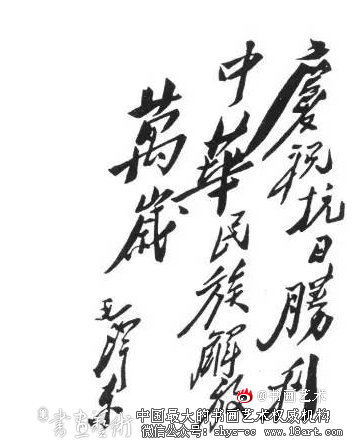 慶祝抗日勝利
中華民族解放
萬歲
毛澤東
@书画艺术
书画艺術
中国最大的书画艺术权威机构
微信公众号: shys-ce www.18art.com